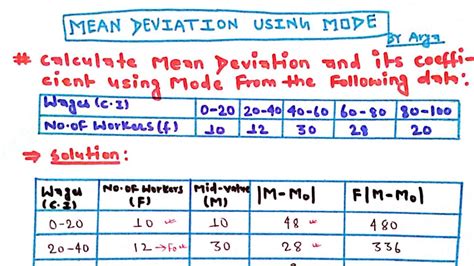 MEAN DEVIATION USING MODE
By Arya
# Calculate Mean Deviation and its coeffi-
cient using Mode From the Following data:
Wages (C.I) 0-20 20-40 40-60 60-80 80-100
No. of Workers (f) 10 12 30 28 20
⇒ Solution:
Wages (C.I) No. of Workers (F) Mid-value (M) |M-Mo| F|M-Mo|
0-20 10 10 48 480
20-40 12 → Fo 30 28 336